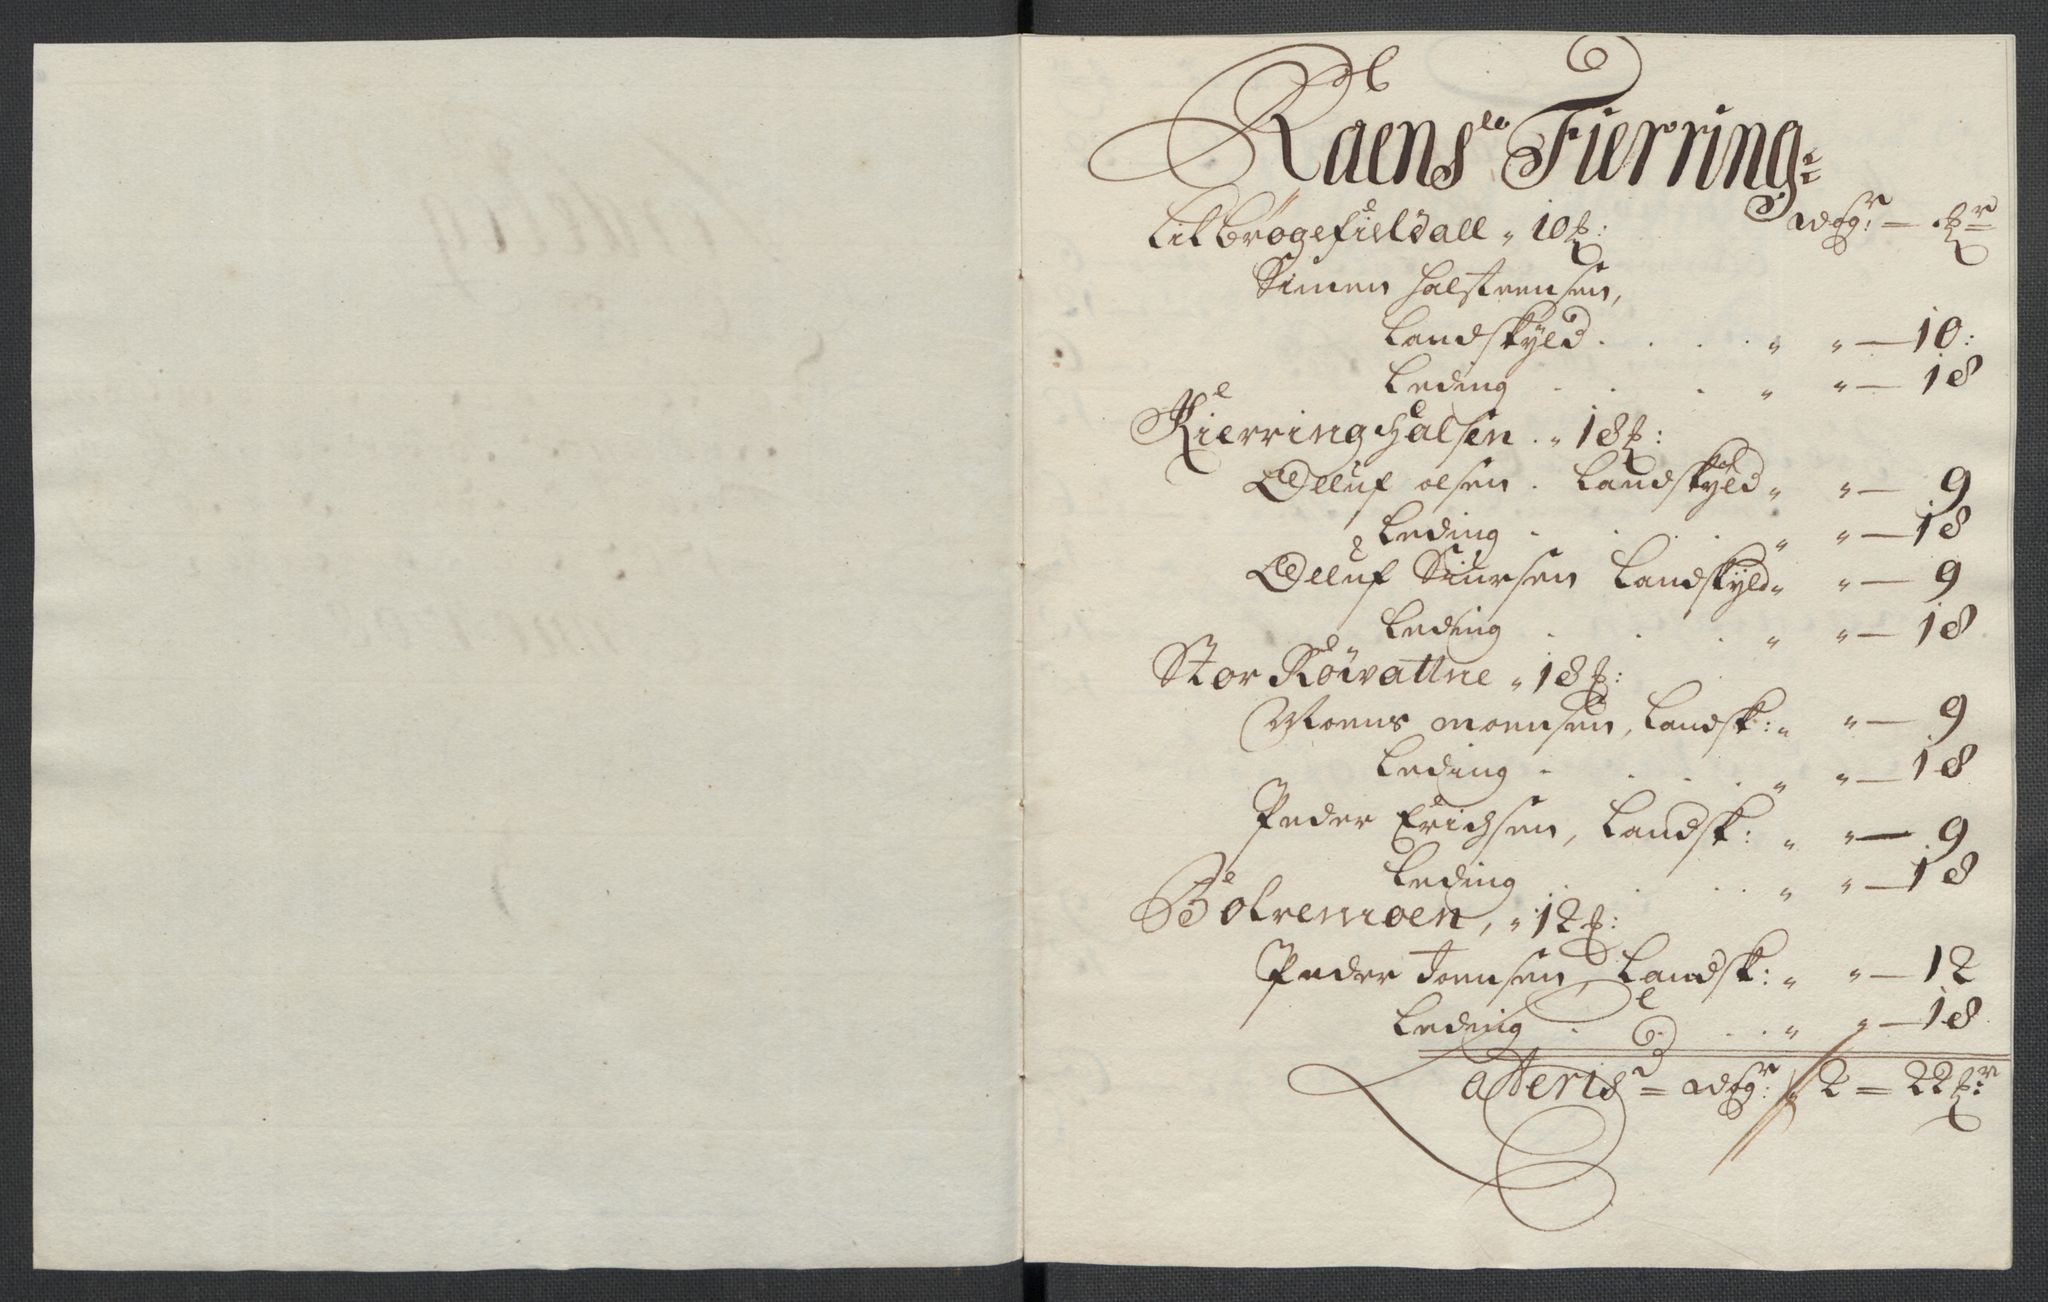 Raens Fierring:
Lilbrøgefieldall " 10 ꝟ:
Simen Halsteensen,
Landskyld . . . . " " — 10:
Leding . . . " " — 18
Kierringhalsen . " 18 ꝟ:
Olluf Olsen . Landskyld " " — 9
Leding . . . . " " — 18
Olluf Siursen Landskyld " " — 9
Leding . . . " " — 18
Stor Røivattne " 18 ꝟ:
Moens Moensen, Landsk: " " — 9
Leding . . . . " " — 18
Peder Erichsen, Landsk: " " — 9
Leding . . . . " " — 18
Bolremoen, " 12 ꝟ:
Peder Joensen, Landsk: " " — 12
Leding . . . . " " — 18
Lateris = 2 = 22